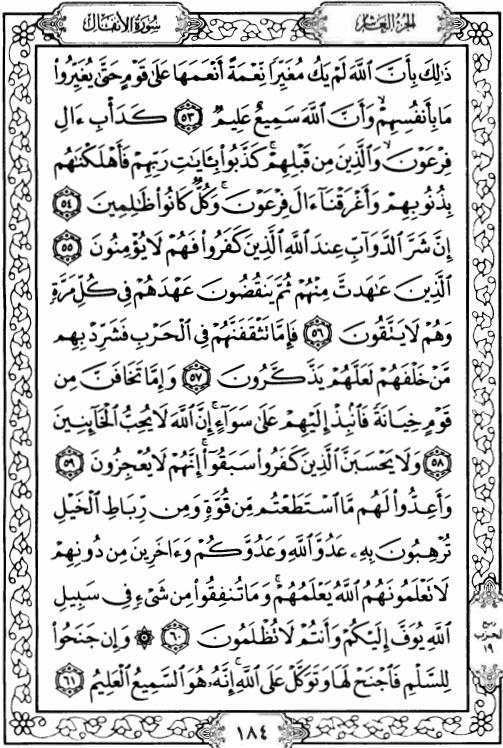 سُورَةُ الأَنفَال
الجُزْءُ العَاشِر
ذَٰلِكَ بِأَنَّ ٱللَّهَ لَمْ يَكُ مُغَيِّرًا نِّعْمَةً أَنْعَمَهَا عَلَىٰ قَوْمٍ حَتَّىٰ يُغَيِّرُوا۟
مَا بِأَنفُسِهِمْ ۙ وَأَنَّ ٱللَّهَ سَمِيعٌ عَلِيمٌ ٥٣ كَدَأْبِ ءَالِ
فِرْعَوْنَ ۙ وَٱلَّذِينَ مِن قَبْلِهِمْ ۚ كَذَّبُوا۟ بِـَٔايَـٰتِ رَبِّهِمْ فَأَهْلَكْنَـٰهُم
بِذُنُوبِهِمْ وَأَغْرَقْنَآ ءَالَ فِرْعَوْنَ ۚ وَكُلٌّ كَانُوا۟ ظَـٰلِمِينَ ٥٤
إِنَّ شَرَّ ٱلدَّوَآبِّ عِندَ ٱللَّهِ ٱلَّذِينَ كَفَرُوا۟ فَهُمْ لَا يُؤْمِنُونَ ٥٥
ٱلَّذِينَ عَـٰهَدتَّ مِنْهُمْ ثُمَّ يَنقُضُونَ عَهْدَهُمْ فِى كُلِّ مَرَّةٍ
وَهُمْ لَا يَتَّقُونَ ٥٦ فَإِمَّا تَثْقَفَنَّهُمْ فِى ٱلْحَرْبِ فَشَرِّدْ بِهِم
مَّنْ خَلْفَهُمْ لَعَلَّهُمْ يَذَّكَّرُونَ ٥٧ وَإِمَّا تَخَافَنَّ مِن
قَوْمٍ خِيَانَةً فَٱنۢبِذْ إِلَيْهِمْ عَلَىٰ سَوَآءٍ ۚ إِنَّ ٱللَّهَ لَا يُحِبُّ ٱلْخَآئِنِينَ
٥٨ وَلَا يَحْسَبَنَّ ٱلَّذِينَ كَفَرُوا۟ سَبَقُوٓا۟ ۚ إِنَّهُمْ لَا يُعْجِزُونَ ٥٩
وَأَعِدُّوا۟ لَهُم مَّا ٱسْتَطَعْتُم مِّن قُوَّةٍ وَمِن رِّبَاطِ ٱلْخَيْلِ
تُرْهِبُونَ بِهِۦ عَدُوَّ ٱللَّهِ وَعَدُوَّكُمْ وَءَاخَرِينَ مِن دُونِهِمْ
لَا تَعْلَمُونَهُمُ ٱللَّهُ يَعْلَمُهُمْ ۚ وَمَا تُنفِقُوا۟ مِن شَىْءٍ فِى سَبِيلِ
ٱللَّهِ يُوَفَّ إِلَيْكُمْ وَأَنتُمْ لَا تُظْلَمُونَ ٦٠ ۞ وَإِن جَنَحُوا۟
لِلسَّلْمِ فَٱجْنَحْ لَهَا وَتَوَكَّلْ عَلَى ٱللَّهِ ۚ إِنَّهُۥ هُوَ ٱلسَّمِيعُ ٱلْعَلِيمُ ٦١
ربع
الحزب
١٩
١٨٤